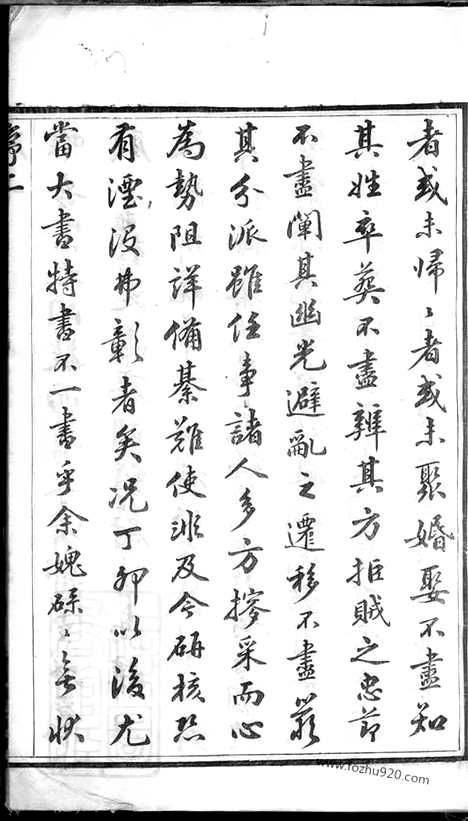 者或未歸〻者或未聚婚娶不盡知
其姓卒葬不盡辨其方拒賊之忠節
不盡闡其幽光避亂之遷移不盡叢
其分派雖任事諸人多方搜采而心
為勢阻詳備綦難使非及今研核恐
有湮沒弗彰者矣况丁卯以後尤
當大書特書不一書乎余媿碌〻無狀
序二
www.fozhu920.com